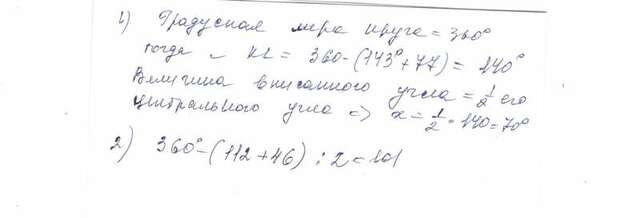 1) Градусная мера круга = 360°
тогда ◡ KL = 360-(143°+77) = 140°
Величина вписанного угла = 1/2 его
центрального угла => x = 1/2 · 140 = 70°
2) 360° - (112 + 46) : 2 = 101